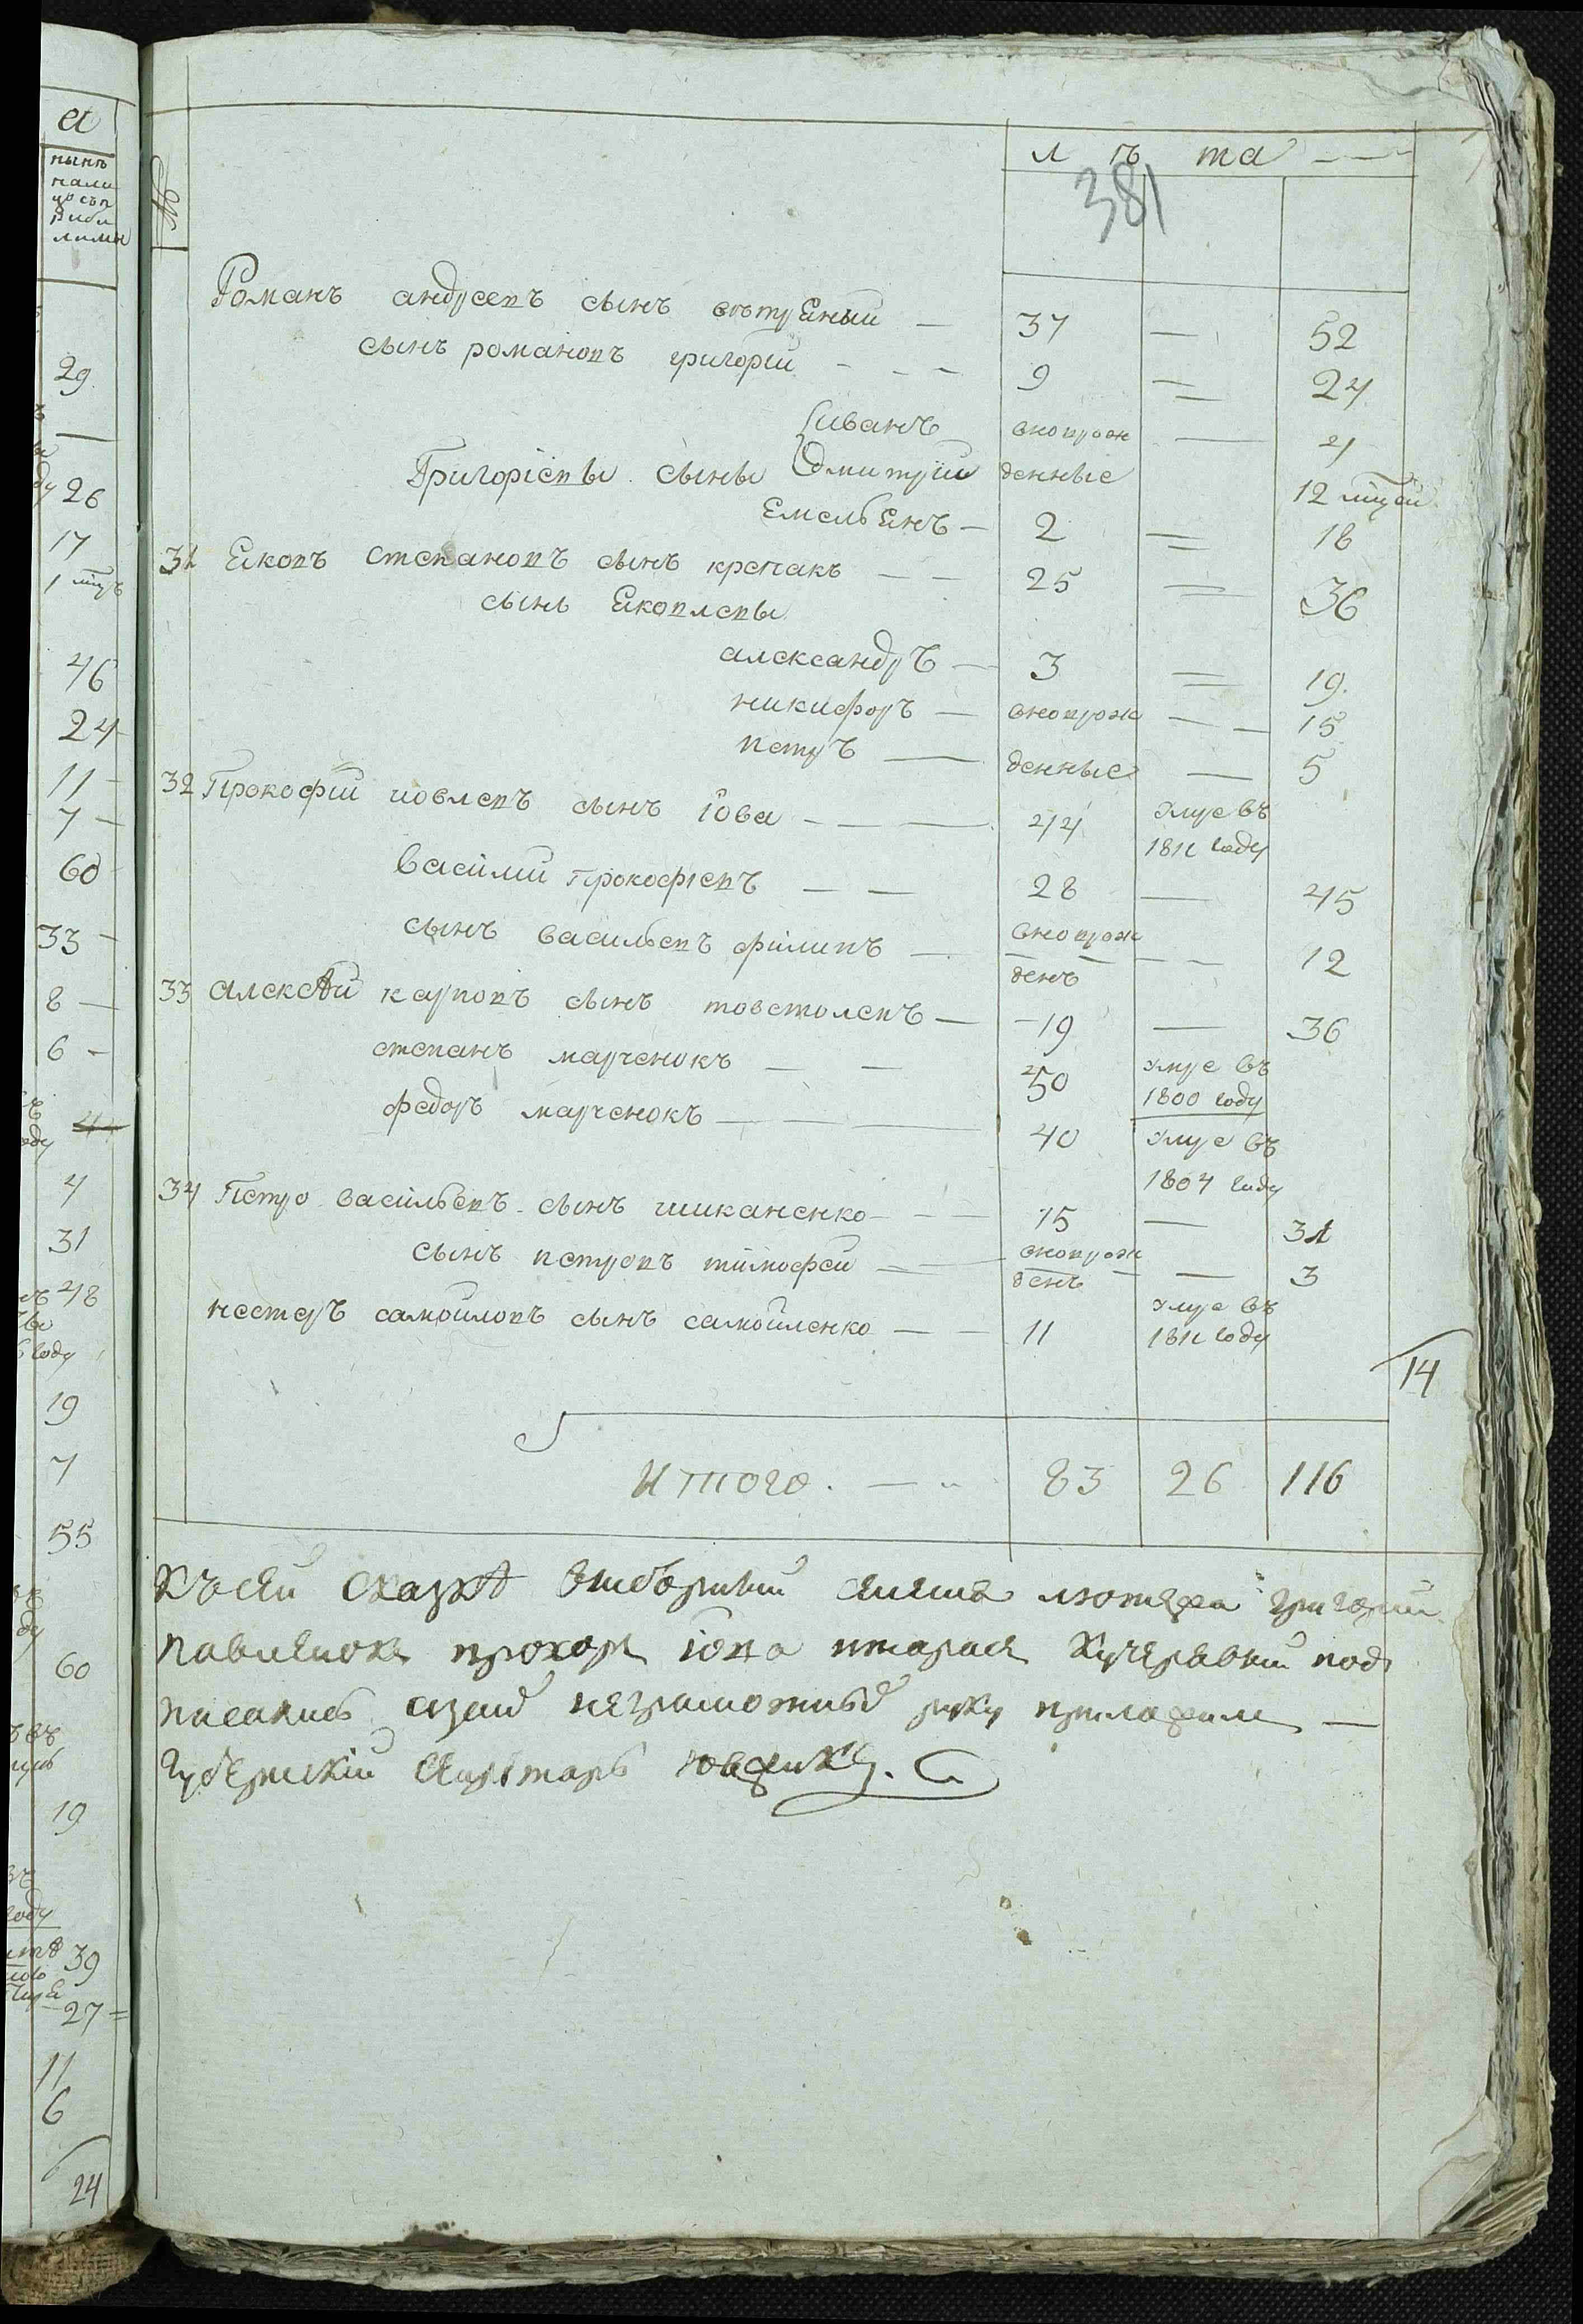 а
нынѣ
нали
№
л ѣ та
381
Романъ андреевъ сынъ вѣтреный — 37 — 52
сынъ романовъ григорій — 9 — 24
иванъ вноврож — 4
Григоріевы сыны дмитрій денные 12 мѣсяц
Емельянъ — 2 — 18
31 Яковъ степановъ сынъ крепакъ — 25 — 36
сыны Яковлевы
александръ — 3 — 19
никифоръ — вновьрож — 15
петръ — денные — 5
32 Прокофій иовлевъ сынъ іова — 44 умре въ
1811 году
василій прокофіевъ — 28 — 45
сынъ васильевъ филипъ — вноврож — 12
денъ
33 алексѣй карповъ сынъ товстолепъ — 19 — 36
степанъ марченокъ — 50 умре въ
1800 году
федоръ марченокъ — 40 умре въ
1804 году
34 Петро васильевъ сынъ шиканенко — 15 — 31
сынъ петровъ тимофей — вноврож — 3
денъ
нестеръ самойловъ сынъ самойленко — 11 умре въ
1811 году
14
Итого. — 83 26 116
Къ сей сказкѣ григорий
павленокъ прохоръ іова тарасъ Кучерявый под
писались азанихъ неграмотныхъ руку приложилъ —
Губернскій секретарь
29
26
17
1 мѣсяцъ
46
24
11
7
60
33
8
6
4
4
31
48
году
19
7
55
60
19
году
39
27
11
6
24